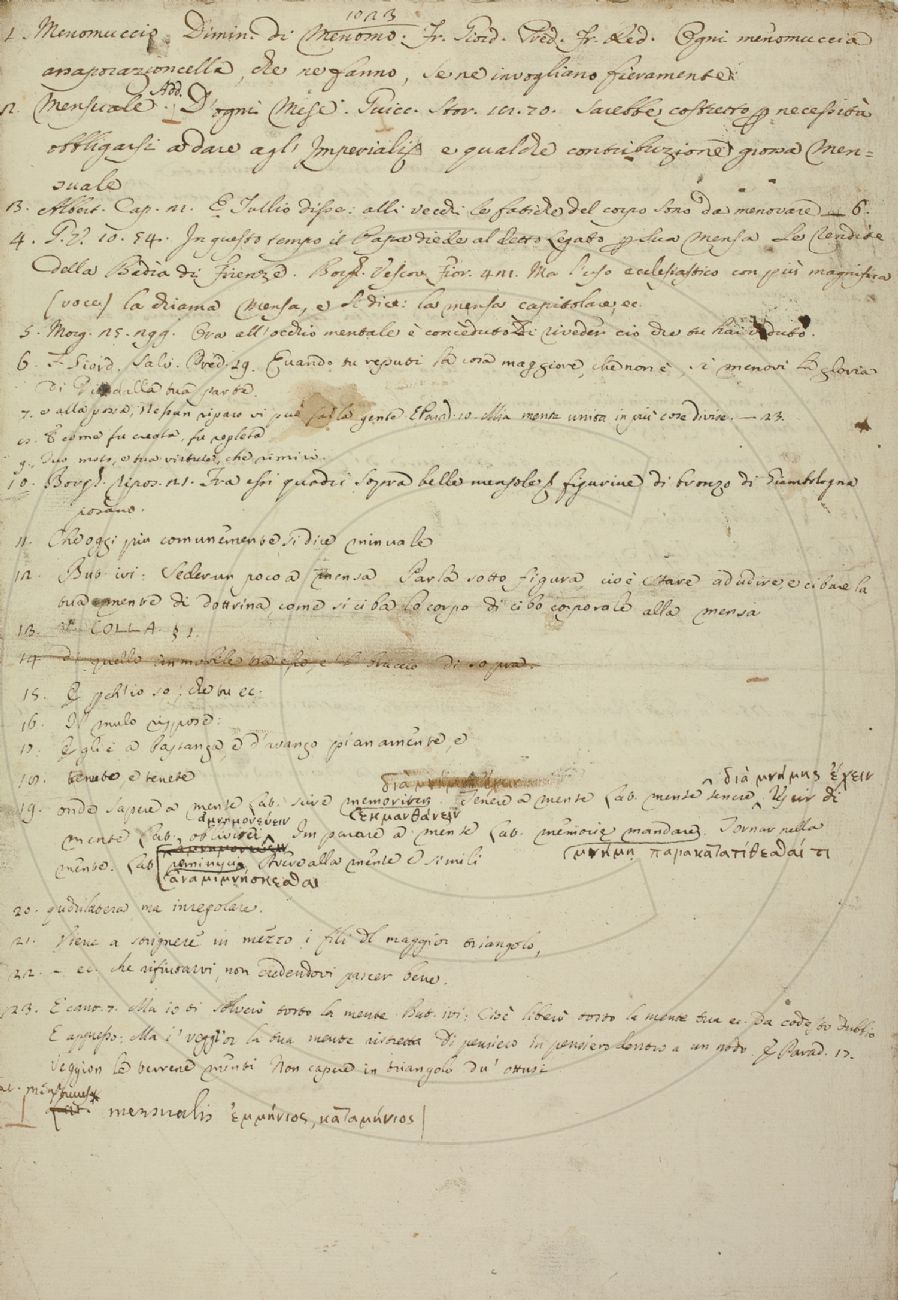 1023
1. Menomuccio. Dimin. di Menomo. Fr. Giord. Pred. Fr. Red. Ogni menomuccia
assaporazioncella, che ne fanno, se ne invogliano fieramente.
2. Mensuale. Add. D'ogni Mese. Guicc. Stor. 10. 70. Sarebbe costretto p necessità
obbligarsi a dare agl' Imperiali e qualche contribuzione grossa Men=
suale
13. Albert. Cap. 21. E Tullio disse: alli vecchi le fatiche del corpo sono da menovare — 6.
4. G. V. 10. 54. In questo tempo il Papa diede al detto Legato p sua mensa le rendite
della Badia di Firenze. Borgh. Vescov. Fior. 421. Ma l'uso ecclesiastico con più magnifica
(voce) la chiama mensa, e si dice: la mensa capitolare, ec.
5. Morg. 25. 299. Ora all'occhio mentale è conceduto Di riveder ciò che tu hai veduto.
6. F. Giord. Salv. Pred. 29. Quando tu reputi la cosa maggiore, che non è, si menovi la gloria
di Dio dalla tua parte
7. e alla possa, Nessun riparo vi può far la gente E Parad. 10. Mia mente unita in più cose divise. — 23.
8. E come fu creata, fu repleta
9. Suo moto, e sua virtute, che rimiri.
10. Borgh. Ripos. 21. Fra essi quadri sopra belle mensole figurine di bronzo di Giambologna
posano.
11. Che oggi più comunemente si dice minuale
12. But. ivi: Seder un poco a mensa Parla sotto figura, cioè stare ad udire, e cibare la
tua mente di dottrina come si ciba lo corpo di cibo corporale alla mensa
13. COLLA. § 1.
14. di quello immobile ed esso, e 'l braccio di sopra.
15. E perch'io so, che tu ec.
16. Il mulo rispose:
17. Egli è a bastanza, e d'avanzo pianamente, e
18. tenete e tenete
διὰ μνήμης ἔχειν διὰ μνήμης ἔχειν
19. onde sapere a mente Lat. scire memoriter. Tenere a mente Lat. mente tenere, Uscir di
ἀμνημονεύειν ἐκμανθάνειν
mente Lat. oblivisci, Imparare a mente Lat. memorie mandare, Tornar nella
μνήμῃ παρακατατίθεσθαί τι
mente. Lat. reminisci, Avere alla mente e simili
ἀναμιμνήσκεσθαι
20. quadrilatera ma irregolare.
21. Viene a strignere in mezzo i fili del maggior triangolo,
22. — ec. che rifiutarvi, non credendovi piacer bene.
23. E cant. 7. Ma io ti solverò tosto la mente. But. ivi: Cioè libererò tosto la mente tua ec. da codesto dubbio
E appresso: Ma i' veggi' or la tua mente ristretta Di pensiero in pensier dentro a un nodo. E Parad. 17.
Veggion le terrene menti Non capere in triangolo du' ottusi
mensualis ἐμμήνιος, καταμήνιος